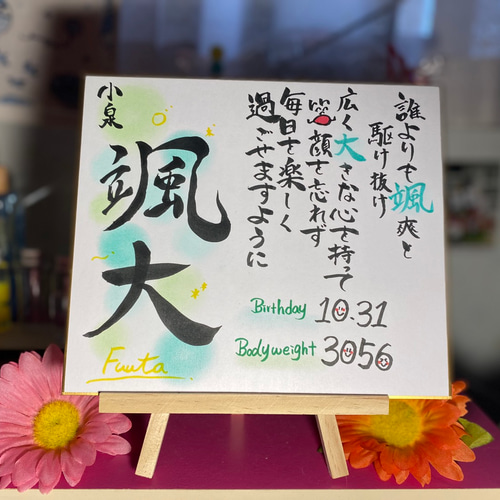 誰よりも颯爽と
駆け抜け
広く大きな心を持って
笑顔を忘れず
毎日を楽しく
過ごせますように
小泉
颯大
Fuuta
Birthday 10.31
Bodyweight 3056